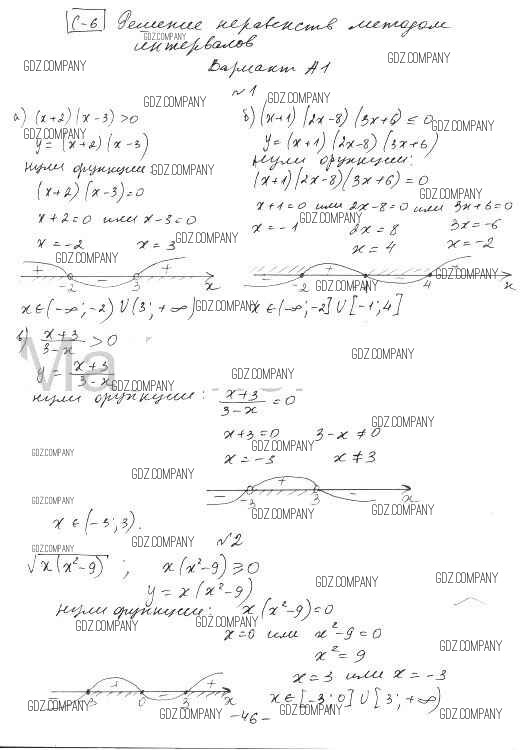 С-6 Решение неравенств методом
интервалов
GDZ.COMPANY
GDZ.COMPANY
GDZ.COMPANY
Вариант А1
№1
GDZ.COMPANY
GDZ.COMPANY
а) (x+2)(x-3)>0
б) (x+1)(2x-8)(3x+6) ≤ 0
GDZ.COMPANY
GDZ.COMPANY
y = (x+2)(x-3)
y = (x+1)(2x-8)(3x+6)
нули функции:
GDZ.COMPANY
нули функции:
(x+2)(x-3)=0
(x+1)(2x-8)(3x+6)=0
GDZ.COMPANY
x+2=0 или x-3=0
x+1=0 или 2x-8=0 или 3x+6=0
GDZ.COMPANY
x=-2 x=3
GDZ.COMPANY
x=-1 2x=8 3x=-6
x=4 x=-2
GDZ.COMPANY
+ - +
-2 3 x
- + - +
-2 -1 4 x
GDZ.COMPANY
x∈(-∞;-2)∪(3;+∞)
GDZ.COMPANY
x∈(-∞;-2]∪[-1;4]
в) x+3/3-x >0
Ma
GDZ.COMPANY
y = x+3/3-x
GDZ.COMPANY
GDZ.COMPANY
нули функции: x+3/3-x =0
x+3=0 3-x≠0
GDZ.COMPANY
GDZ.COMPANY
GDZ.COMPANY
x=-3 x≠3
GDZ.COMPANY
- + -
-3 3 x
GDZ.COMPANY
GDZ.COMPANY
GDZ.COMPANY
x∈(-3;3).
№2
GDZ.COMPANY
GDZ.COMPANY
√x(x²-9) ; x(x²-9)≥0
GDZ.COMPANY
GDZ.COMPANY
y=x(x²-9)
нули функции: x(x²-9)=0
GDZ.COMPANY
GDZ.COMPANY
x=0 или x²-9=0
GDZ.COMPANY
x²=9
x=3 или x=-3
- + - +
-3 0 3 x
x∈[-3;0]∪[3;+∞)
GDZ.COMPANY
GDZ.COMPANY
-46-
GDZ.COMPANY
GDZ.COMPANY